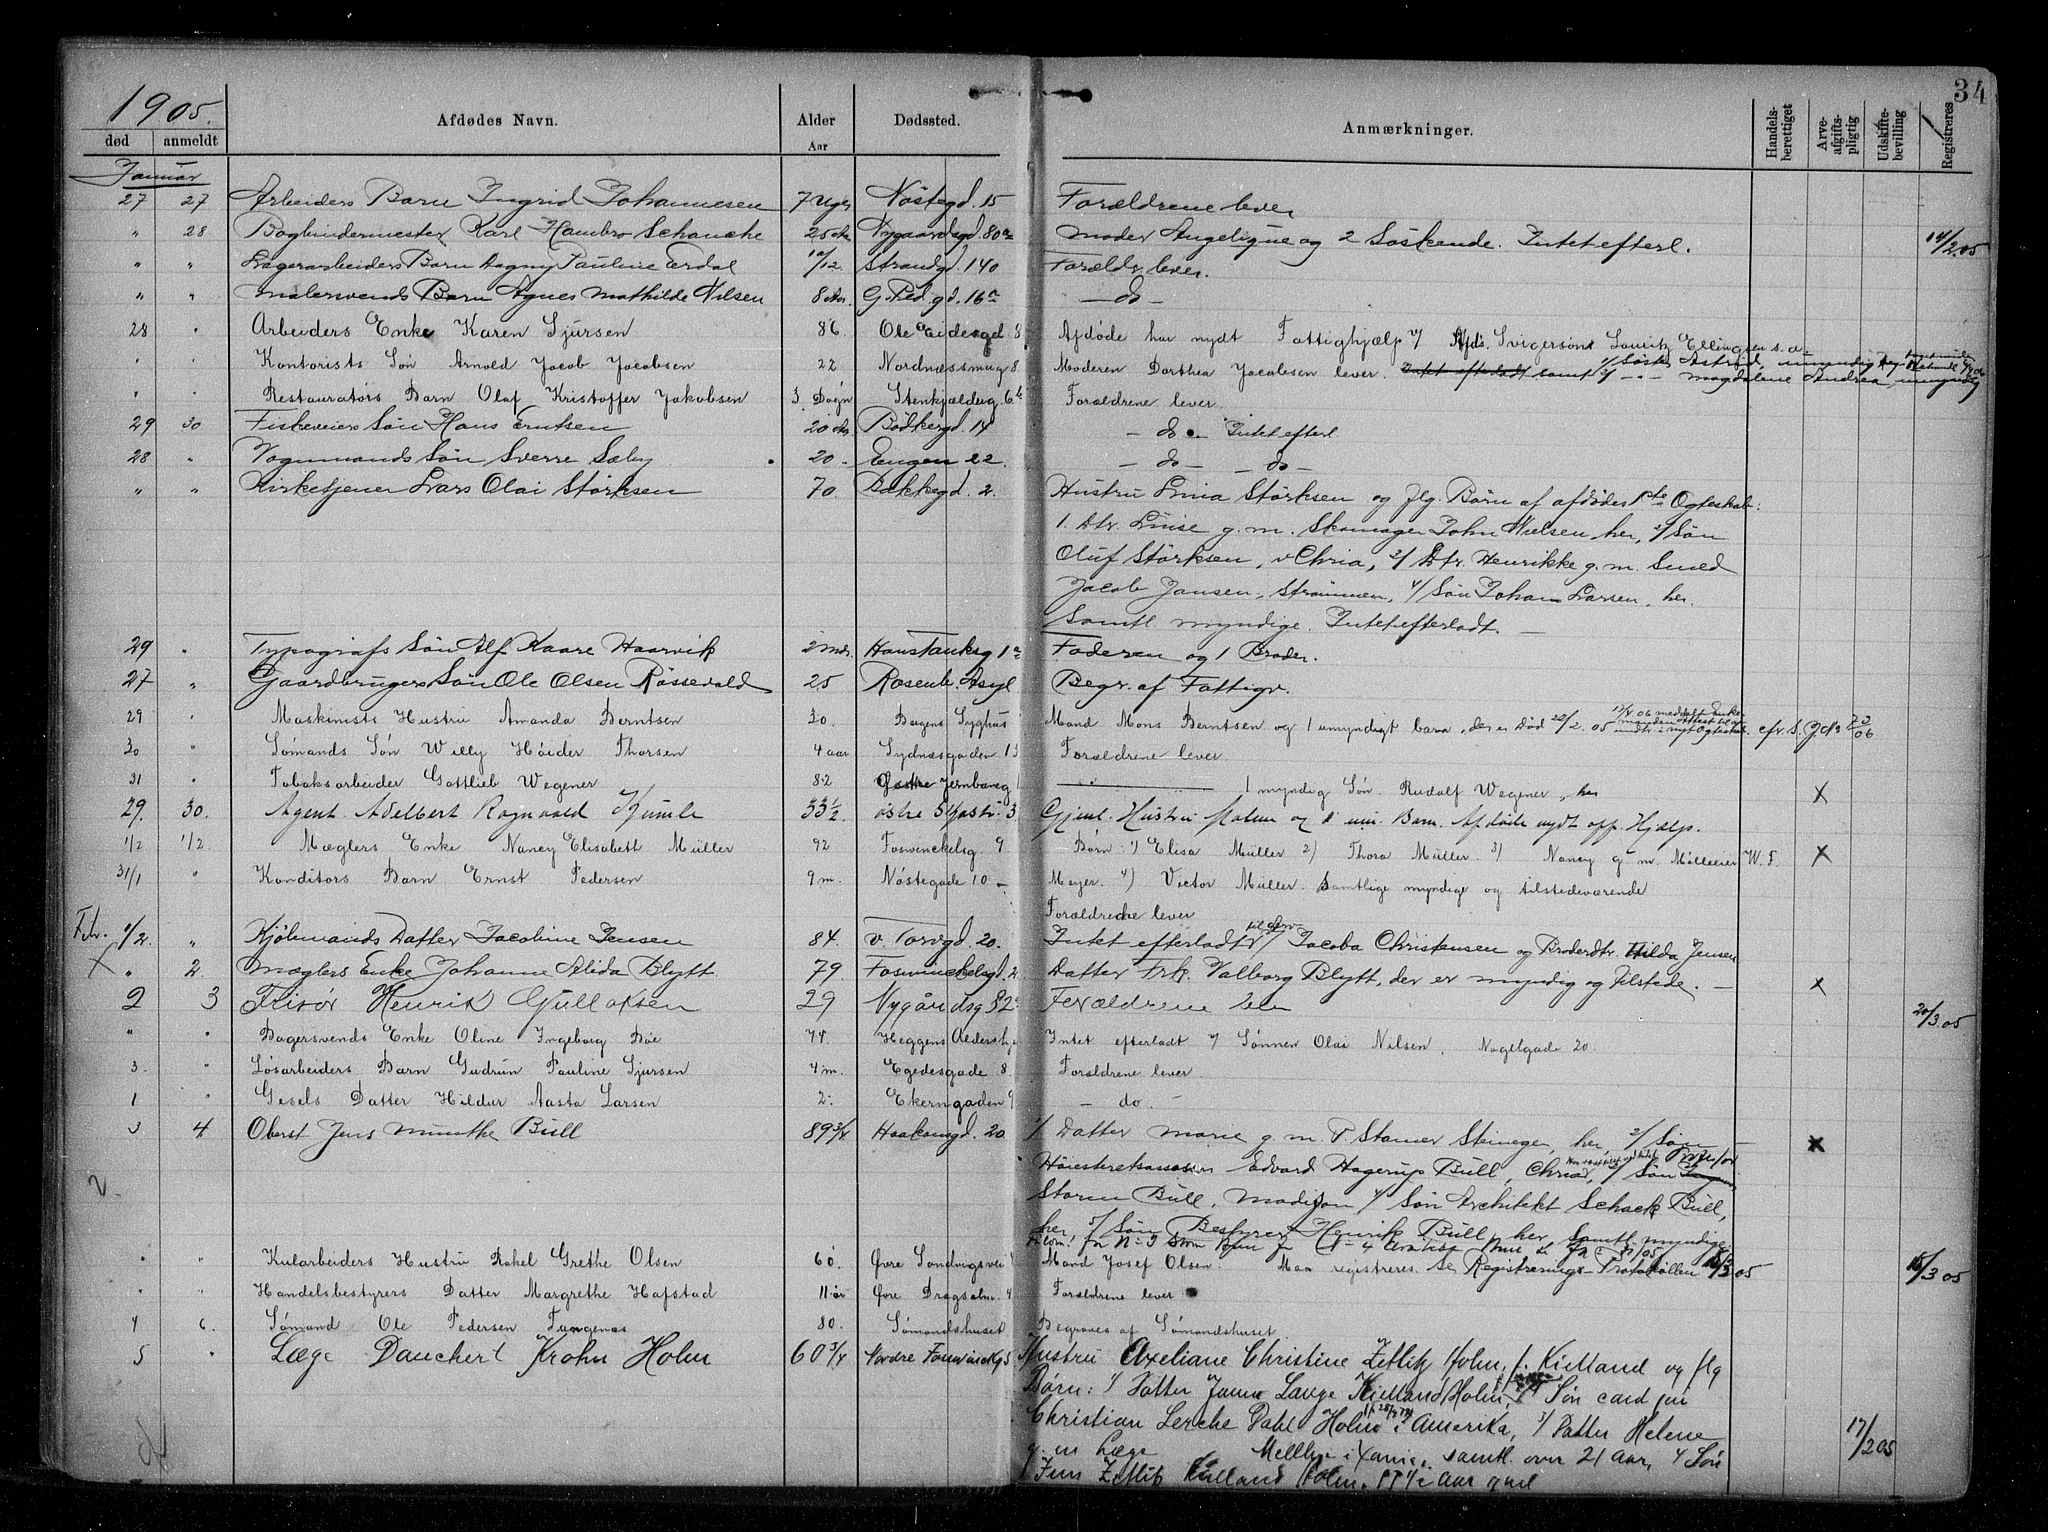 34
1905.
død anmeldt Afdødes Navn. Alder Aar Dødssted. Anmærkninger. Handels-berettiget Arve-afgifts-pligtig Udskifte-bevilling Registreres
Januar
27 27 Arbeiders Barn Ingrid Johannesen 7 Uger Nöstegd. 15 Forældrene lever
" 28 Bogbindermester Karl Hambro Schanche 25 Aar Nygaardsgd. 80 Moder Angelique og 2 Söskende. Intet efterl. 14/2.05
" " Lagerarbeiders Barn Aagny Pauline Erdal 10/12 Strandgd. 140 Forældr. lever.
" " Malersvends Barn Agnes Mathilde Nilsen 8 Aar. 16 — do —
28 " Arbeiders Enke Karen Sjursen 86. Ole Eidesgd 8 Afdøde har nydt Fattighjælp Svigersøn Lauritz Ellingsen
" " Kontorists Søn Arnold Jacob Jacobsen 22 Nordnæssmug 8 Moderen Dorthea Jacobsen lever. Intet efterladt samt Søster Astrid, umyndig Magdalene Andrea umyndig
" " Restauratörs Barn Olaf Kristoffer Jakobsen 3 Døgn Stenkjælderg. 6 Forældrene lever.
29 30 Fiskeveiers Sön Hans Erntsen 20 Aar Bödkergd. 14 — do — Intet efterl
28 " Vognmands Sön Sverre Sæby 20 Engen 22. — do — — do —
" " Kirketjener Lars Olai Störksen 70. Bakkegd. 2. Hustru Lina Störksen og flg. Börn af afdødes 1ste Ogteskab:
1. Dtr. Luise g. m. Skomager John Nielsen her, 2/ Sön
Oluf Störksen, v Chria, 3/ Dtr. Henrikke g. m. Smed
Jacob Jansen, Strömmen, 4/ Sön Johan Larsen, her.
Samtl myndige. Intet efterladt. —
29 " Typografs Sön Alf Kaare Haarvik 2 Mdr. Hans Tanksg 1 Faderen og 1 Broder.
27 " Gaardbrugers Sön Ole Olsen Røssevold 25 Rosenb. Asyl Begr. af Fattigv.
29 " Maskinists Hustru Amanda Berntsen 30. Bergens Syghus Mand Mons Berntsen og 1 umyndigt barn, der er død 22/2. 05
30 " Sømands Søn Willy Høider Thorsen 4 aar Sydnæsgaden 13 Forældrene lever.
31 " Tobaksarbeider Gottlieb Wegener 82 Østre Jernbaneg 1 1 myndig Søn. Rudolf Wegener, her X
29. 30. Agent Adelbert Ragnvald Kumle 33 1/2 östre 3 Gjenl. Hustru Malen og 1 um. Barn. Afdöde nydt off. Hjælp.
1/2 1/2 Mæglers Enke Nancy Elisabeth Müller 92 Foswinckelsg. 9. Børn: 1) Elisa Müller 2) Thora Müller. 3) Nancy g. m. Mølleeier W. F. X
31/1 " Konditors Barn Ernst Pedersen 9 m. Nöstegade 10 Meyer. 4) Victor Müller. Samtlige myndige og tilstedeværende
Forældrene lever
Febr. 1/2. " Kjöbmands Datter Jacobine Jensen 84. v. Torvgd. 20. Intet efterladt Jacoba Christensen og Broderdtr. Hilda Jensen
X " 2. Mæglers Enke Johanne Alida Blytt 79 Foswinckelsgd. 2 Datter Frk. Valborg Blytt, der er myndig og tilstede. — X
2 3 Frisör Henrik Gulloksen 29 Nygårdsg 52 Forældrene lever 20/3.05
" " Bagersvends Enke Oline Ingeborg Böe 74. Heggens Aldershj. Intet efterladt Sønnen Olai Nilsen. Nagelgade 20.
3. " Løsarbeiders Barn Gudrun Pauline Sjursen 4 m. Egedesgade 8. Forældrene lever
1 " Gesels Datter Hildur Aasta Larsen 2. Ekerngaden 9 — do. —
3 4. Oberst Jens Munthe Bull 89 3/4 Haakonsgd. 20 1/ Datter Marie g. m. P. Stamer Steineger, her, 2/ Søn X
Edvard Hagerup Bull, Chria, 3/ Søn
2. Storm Bull, Madison 4/ Sön Architekt Schack Bull,
her 5/ Sön Bestyrer Henrik Bull, her, Samtl. myndige
" " Kularbeiders Hustru Rakel Grethe Olsen 60 Øvre Sandvigsvei Mand Josef Olsen. Maa registreres. Se Registrerings-Protokollen 15/3 05 15/3 05
" " Handelsbestyrers Datter Margrethe Hafstad 11 år Øvre Dragsalm. 4 Forældrene lever
4 6. Sømand Ole Pedersen Fungenes 80. Sømandshuset Begraves af Sømandshuset.
5 " Læge Danckert Krohn Holm 60 3/4 Nordre Foswinckelsg 5 Hustru Axeliane Christine Zetlitz Holm, f. Kielland og flg
Börn: 1/ Datter Lange Kielland Holm, 2/ Søn cand jur
Christian Lerche Dahl Holm i Amerika, 3/ Datter Helene 17/2 05
g. m Læge Mellbye samtl. over 21 Aar, 4 Søn
Jens Zetlitz Kielland Holm. Aar gml